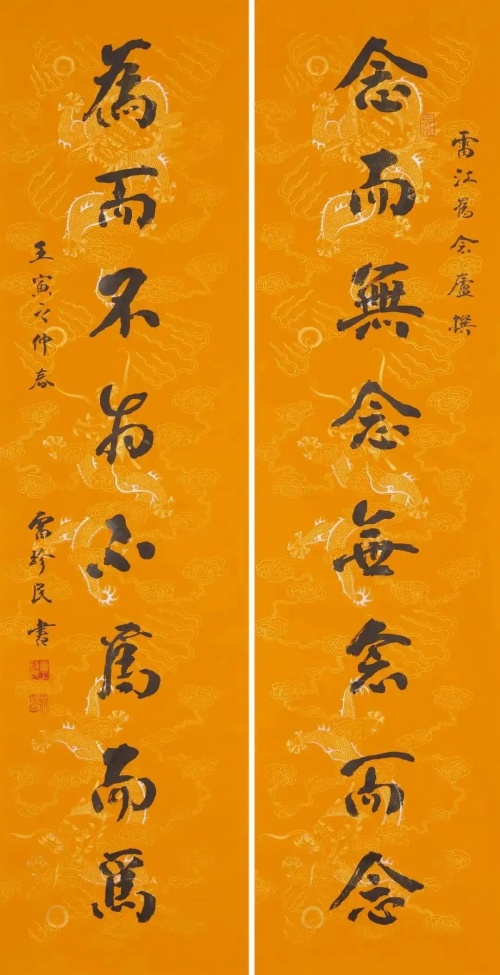 江念廬撰
念而無念無念而念
為而不为不為而為
壬寅之仲春
雷珍民書